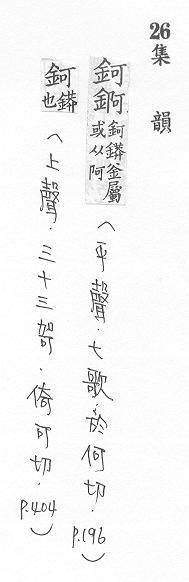 26 集韻
鈳錒 鈳䥈釜屬或从阿（平聲．七歌．於何切．P.196）
鈳 䥈也（上聲．三十三哿．倚可切．P.404）